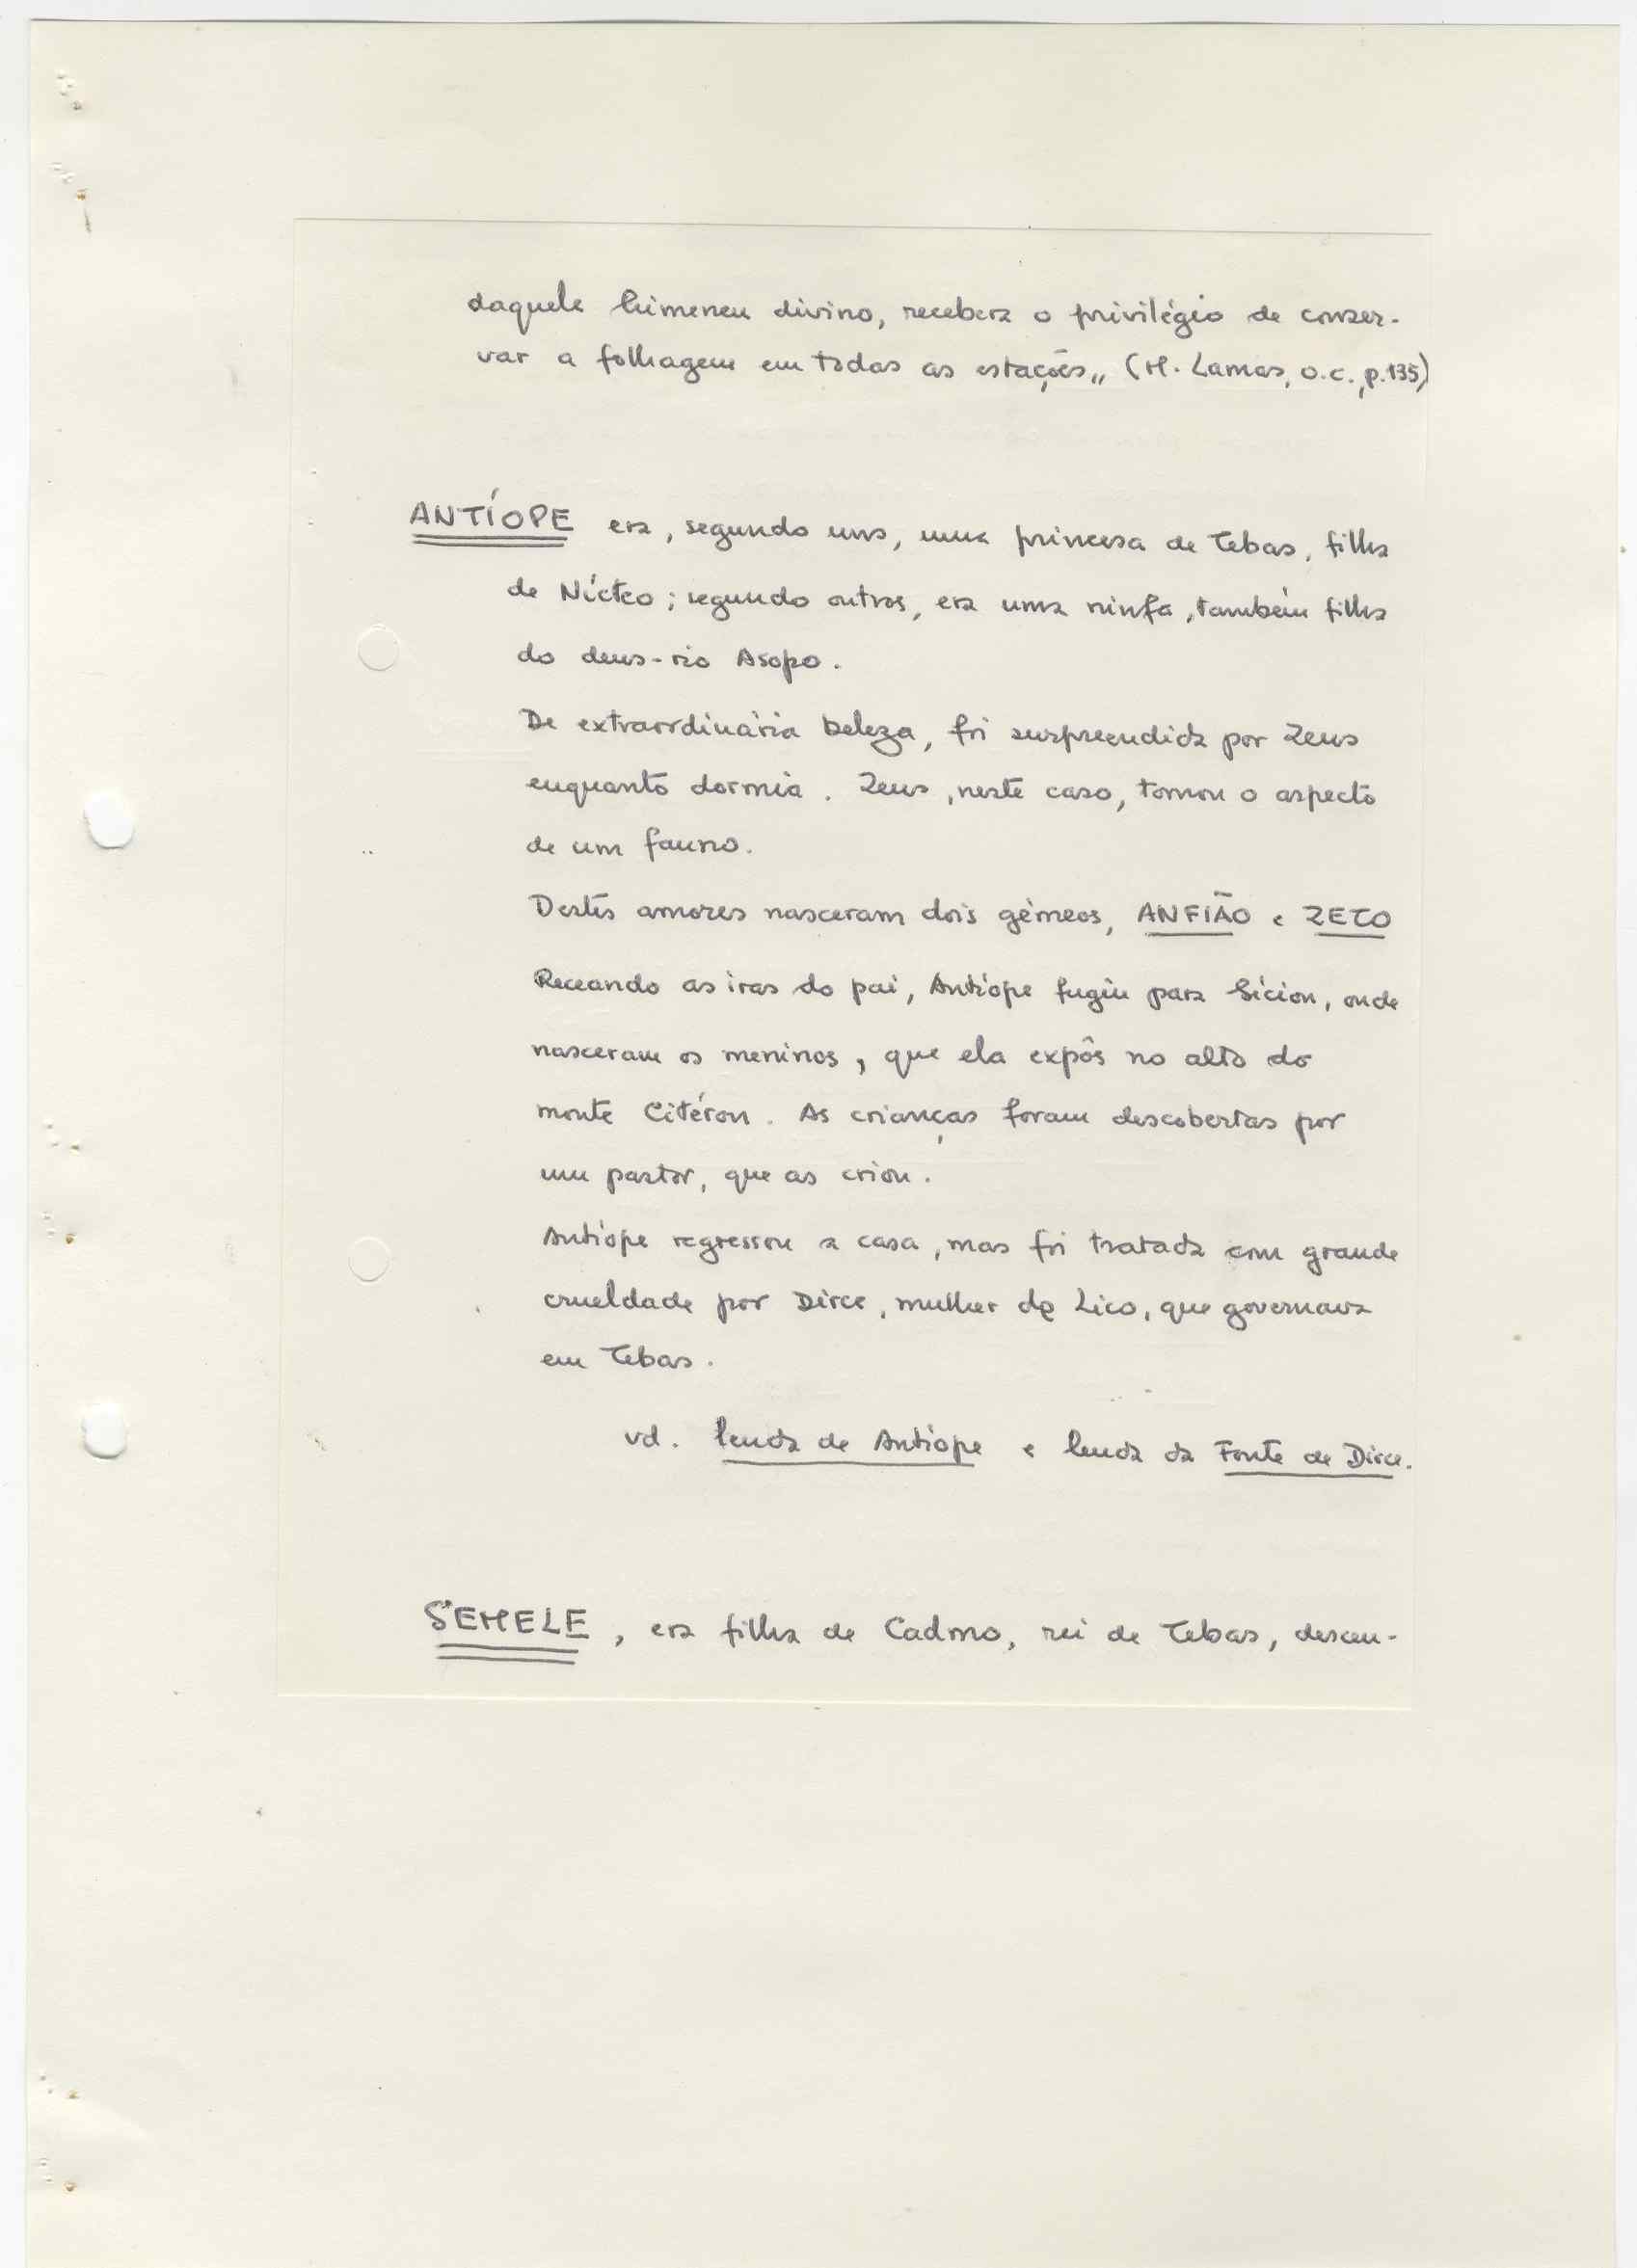 daquele himeneu divino, recebera o privilégio de conser-
var a folhagem em todas as estações,, (M. Lamas, o.c., p.135)
ANTÍOPE era, segundo uns, uma princesa de Tebas, filha
de Nícteo; segundo outros, era uma ninfa, também filha
do deus-rio Asopo.
De extraordinária beleza, foi surpreendida por Zeus
enquanto dormia. Zeus, neste caso, tomou o aspecto
de um fauno.
Destes amores nasceram dois gémeos, ANFIÃO e ZETO
Receando as iras do pai, Antíope fugiu para Sícion, onde
nasceram os meninos, que ela expôs no alto do
monte Citéron. As crianças foram descobertas por
um pastor, que as criou.
Antíope regressou a casa, mas foi tratada com grande
crueldade por Dirce, mulher de Lico, que governava
em Tebas.
vd. lenda de Antíope e lenda da Fonte de Dirce.
SÉMELE, era filha de Cadmo, rei de Tebas, descen-